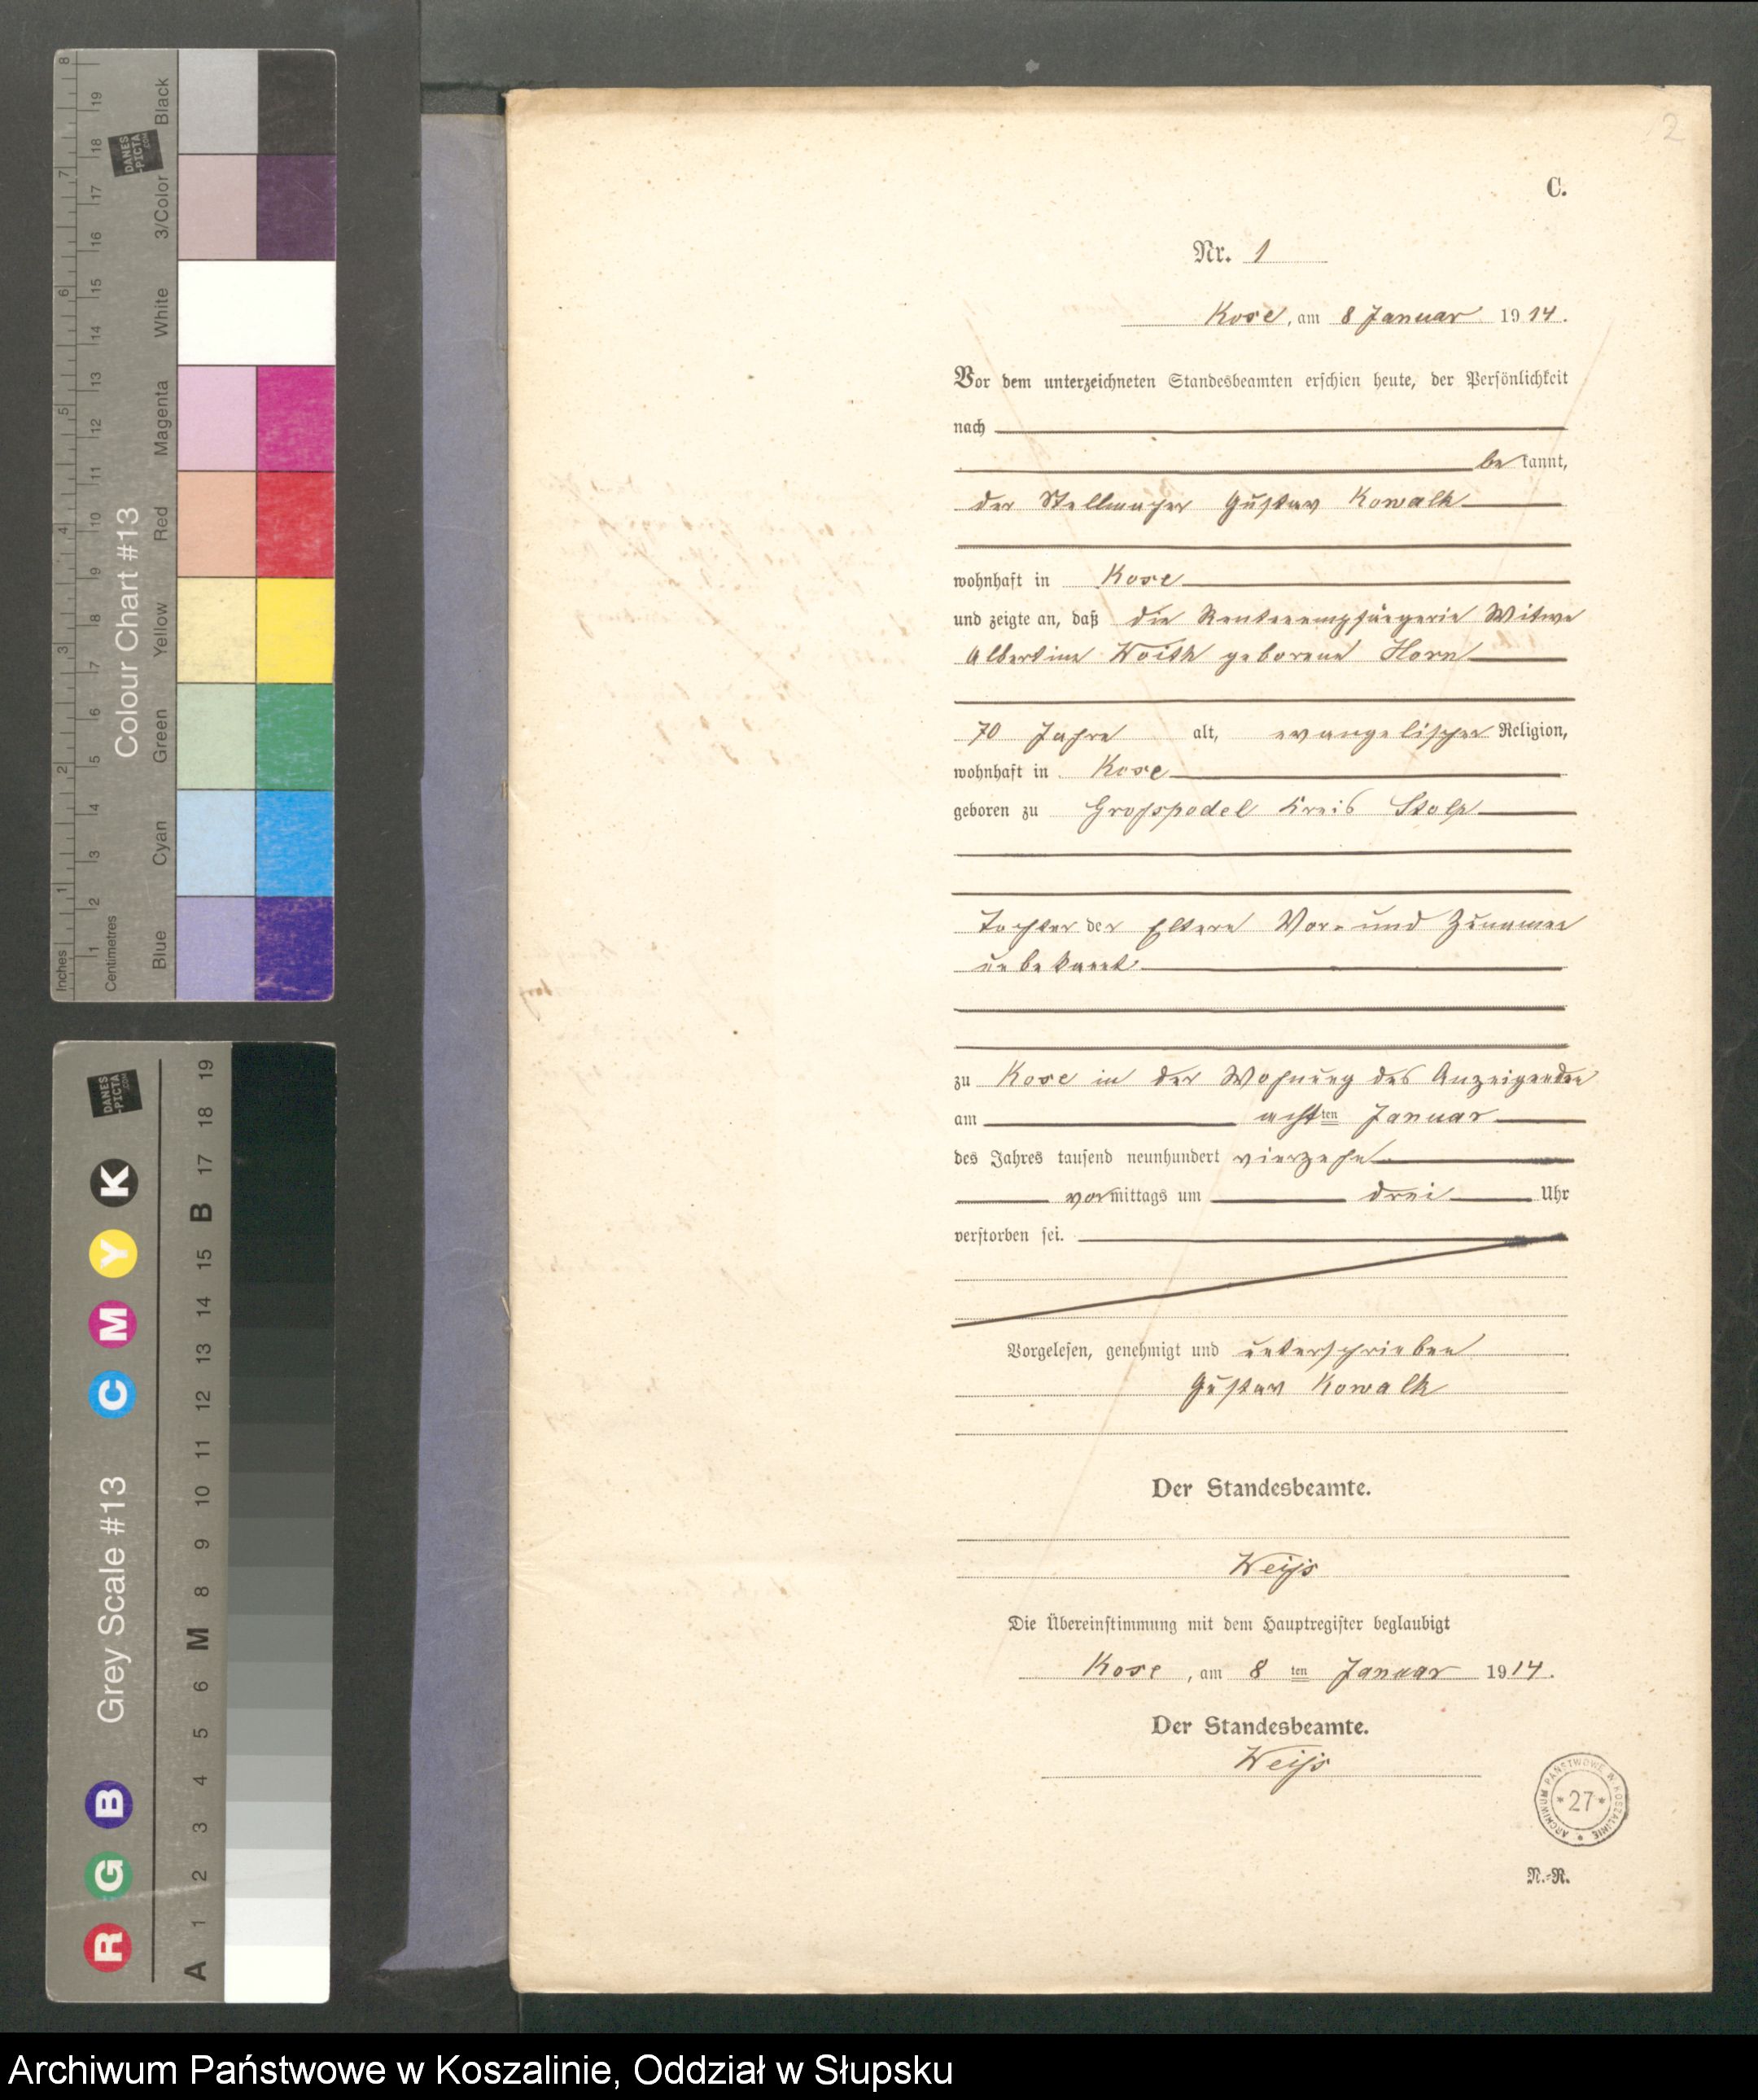 2
C.
Nr. 1
Kose, am 8 Januar 1914.
Vor dem unterzeichneten Standesbeamten erschien heute, der Persönlichkeit
nach
bekannt,
der Stellmacher Gustav Kowalk
wohnhaft in Kose
und zeigte an, daß die Rentenempfängerin Witwe
Albertine Woith geborene Horn
70 Jahre alt, evangelischer Religion,
wohnhaft in Kose
geboren zu Grosspodel Kreis Stolp
Tochter der Eltern Vor- und Zunamen
unbekannt
zu Kose in der Wohnung des Anzeigenden
am achtten Januar
des Jahres tausend neunhundert vierzehn
vormittags um drei Uhr
verstorben sei.
Vorgelesen, genehmigt und unterschrieben
Gustav Kowalk
Der Standesbeamte.
Weiss
Die Übereinstimmung mit dem Hauptregister beglaubigt
Kose, am 8 ten Januar 1914.
Der Standesbeamte.
Weiss
ARCHIWUM PAŃSTWOWE W KOSZALINIE
*27*
N.-R.
Inches 1 2 3 4 5 6 7 8
Centimetres 1 2 3 4 5 6 7 8 9 10 11 12 13 14 15 16 17 18 19
DANES-PICTA.COM
Colour Chart #13
Blue Cyan Green Yellow Red Magenta White 3/Color Black
DANES-PICTA.COM
Grey Scale #13
R G B C M Y K
A 1 2 3 4 5 6 M 8 9 10 11 12 13 14 15 B 17 18 19
Archiwum Państwowe w Koszalinie, Oddział w Słupsku